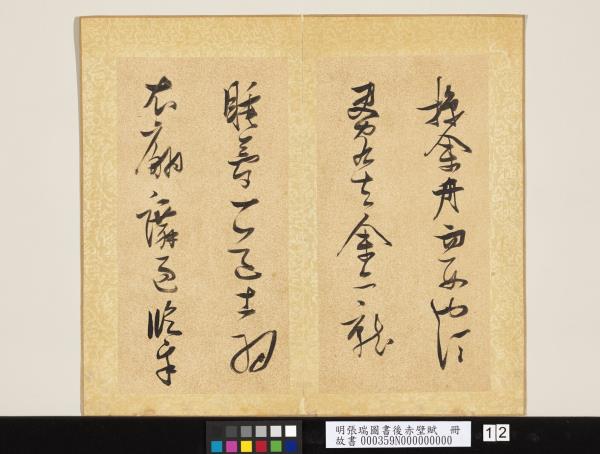 掠余舟而西也須
臾客去余亦就
睡夢一道士羽
衣翩躚過臨皋
明張瑞圖書後赤壁賦 冊
故書 000359N000000000
12